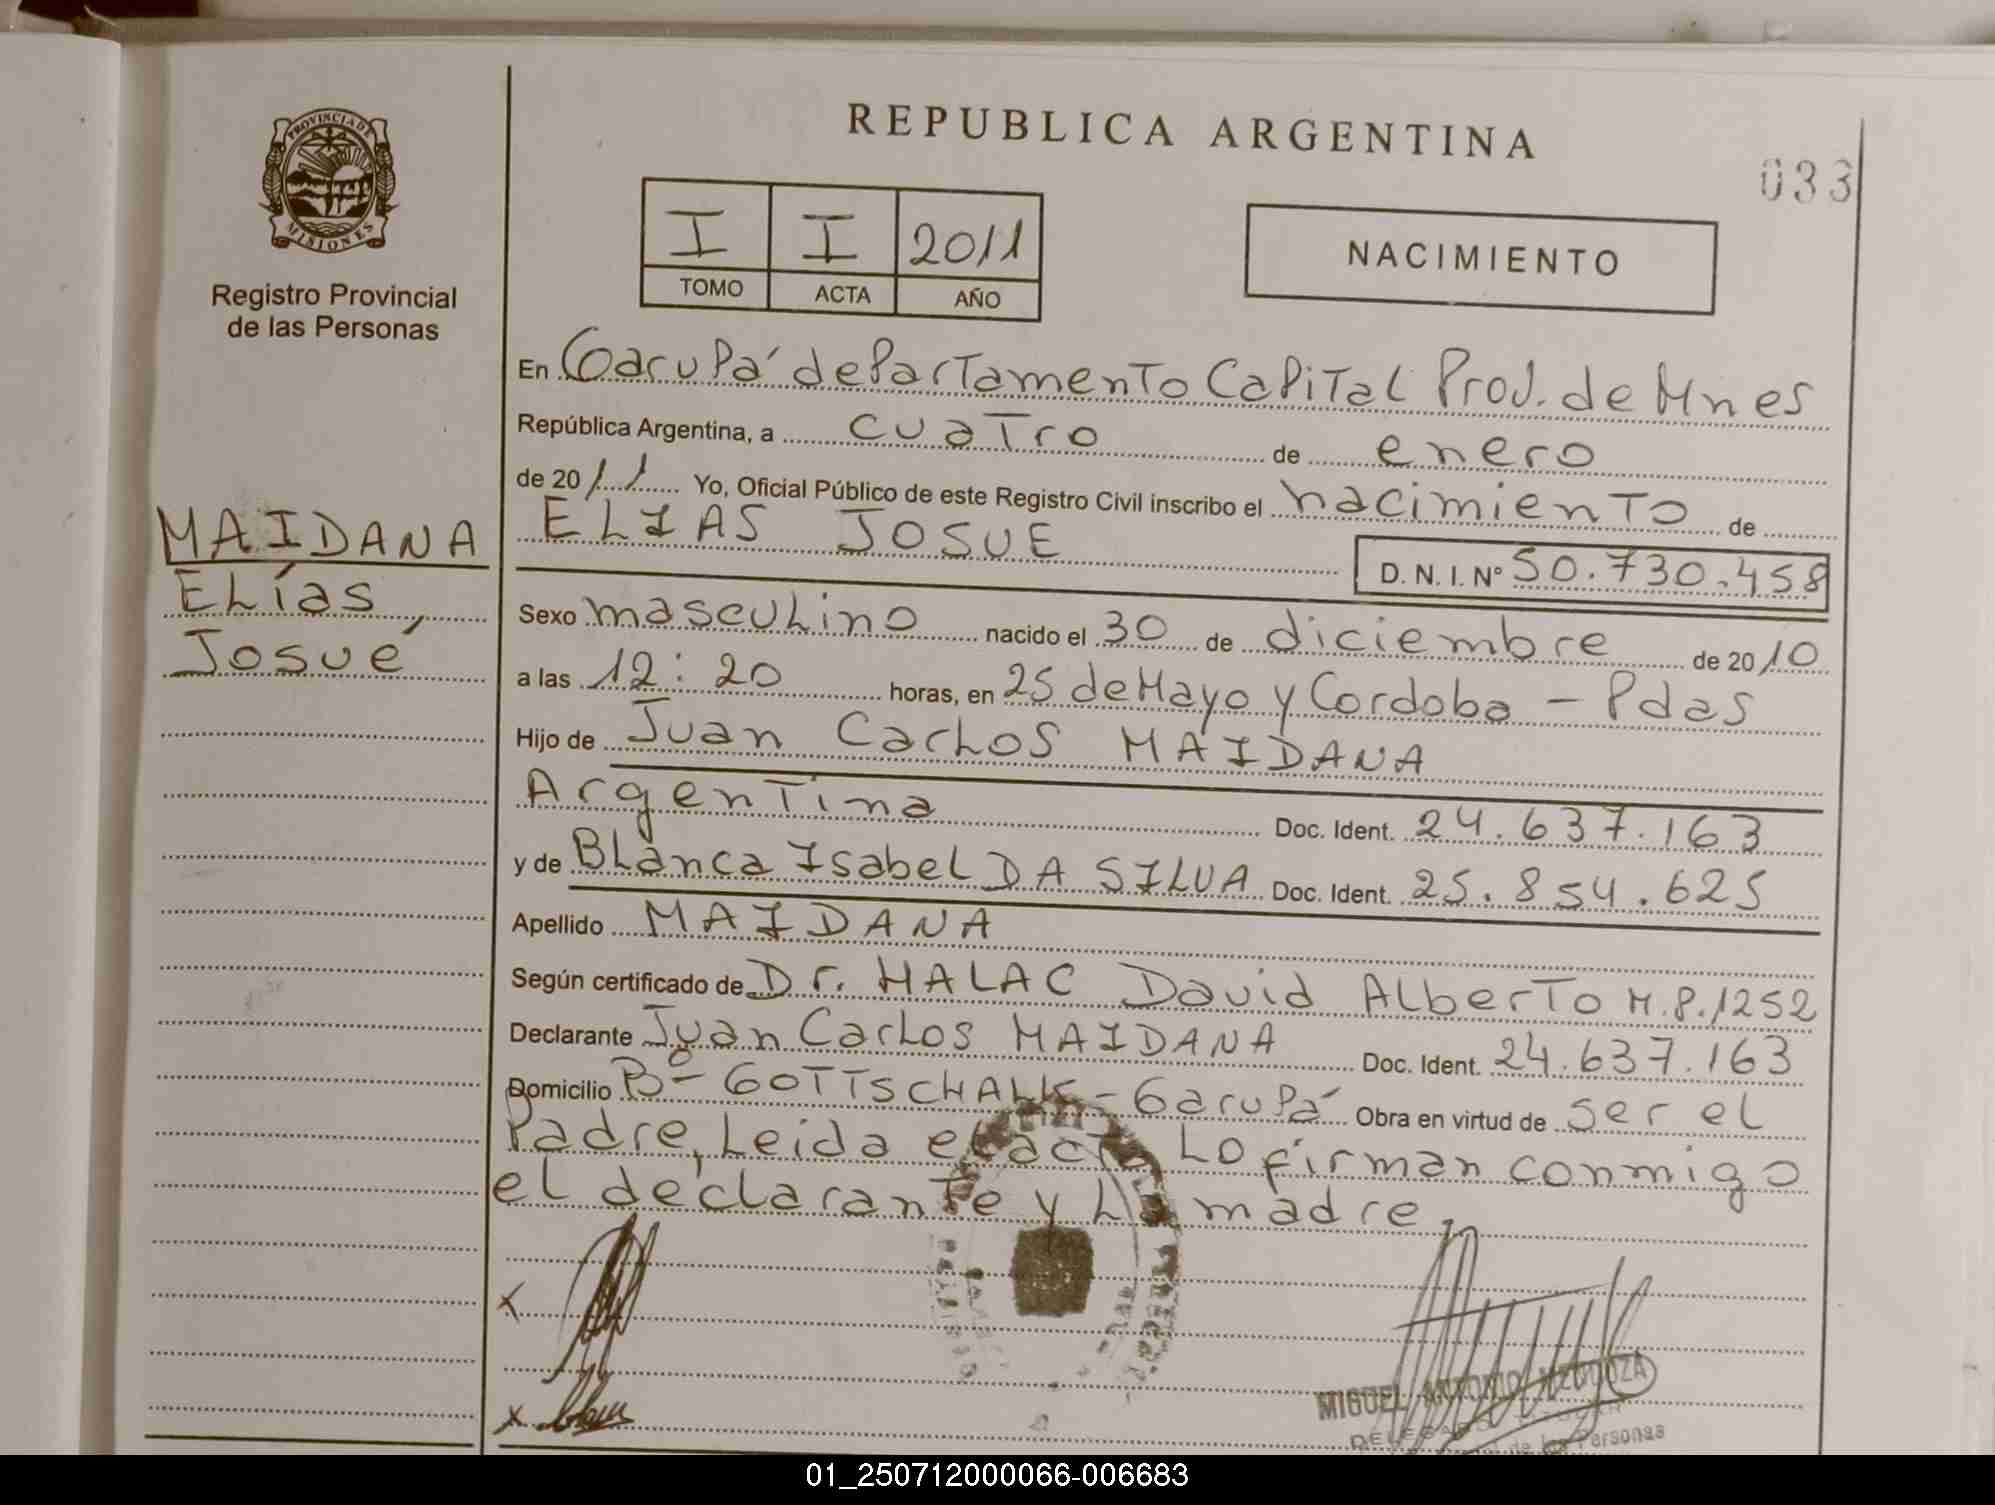 REPUBLICA ARGENTINA
033
PROVINCIA DE MISIONES
Registro Provincial
de las Personas
I I 2011
TOMO ACTA AÑO
NACIMIENTO
En Garupá departamento Capital Prov. de Mnes
República Argentina, a cuatro de enero
de 2011 Yo, Oficial Público de este Registro Civil inscribo el nacimiento de
ELIAS JOSUE
D. N. I. Nº 50.730.458
MAIDANA
Elías
Josué
Sexo masculino nacido el 30 de diciembre de 2010
a las 12:20 horas, en 25 de Mayo y Cordoba - Pdas
Hijo de Juan Carlos MAIDANA
Argentina Doc. Ident. 24.637.163
y de Blanca Isabel DA SILVA Doc. Ident. 25.854.625
Apellido MAIDANA
Según certificado de Dr. HALAC David Alberto M.P.1252
Declarante Juan Carlos MAIDANA Doc. Ident. 24.637.163
Domicilio Bº - GOTTSCHALK - Garupá Obra en virtud de ser el
Padre, Leida el acta Lo firman conmigo
el declarante y la madre.
x
x
MIGUEL ANTONIO MENDOZA
DELEGADO
de las Personas
01_250712000066-006683